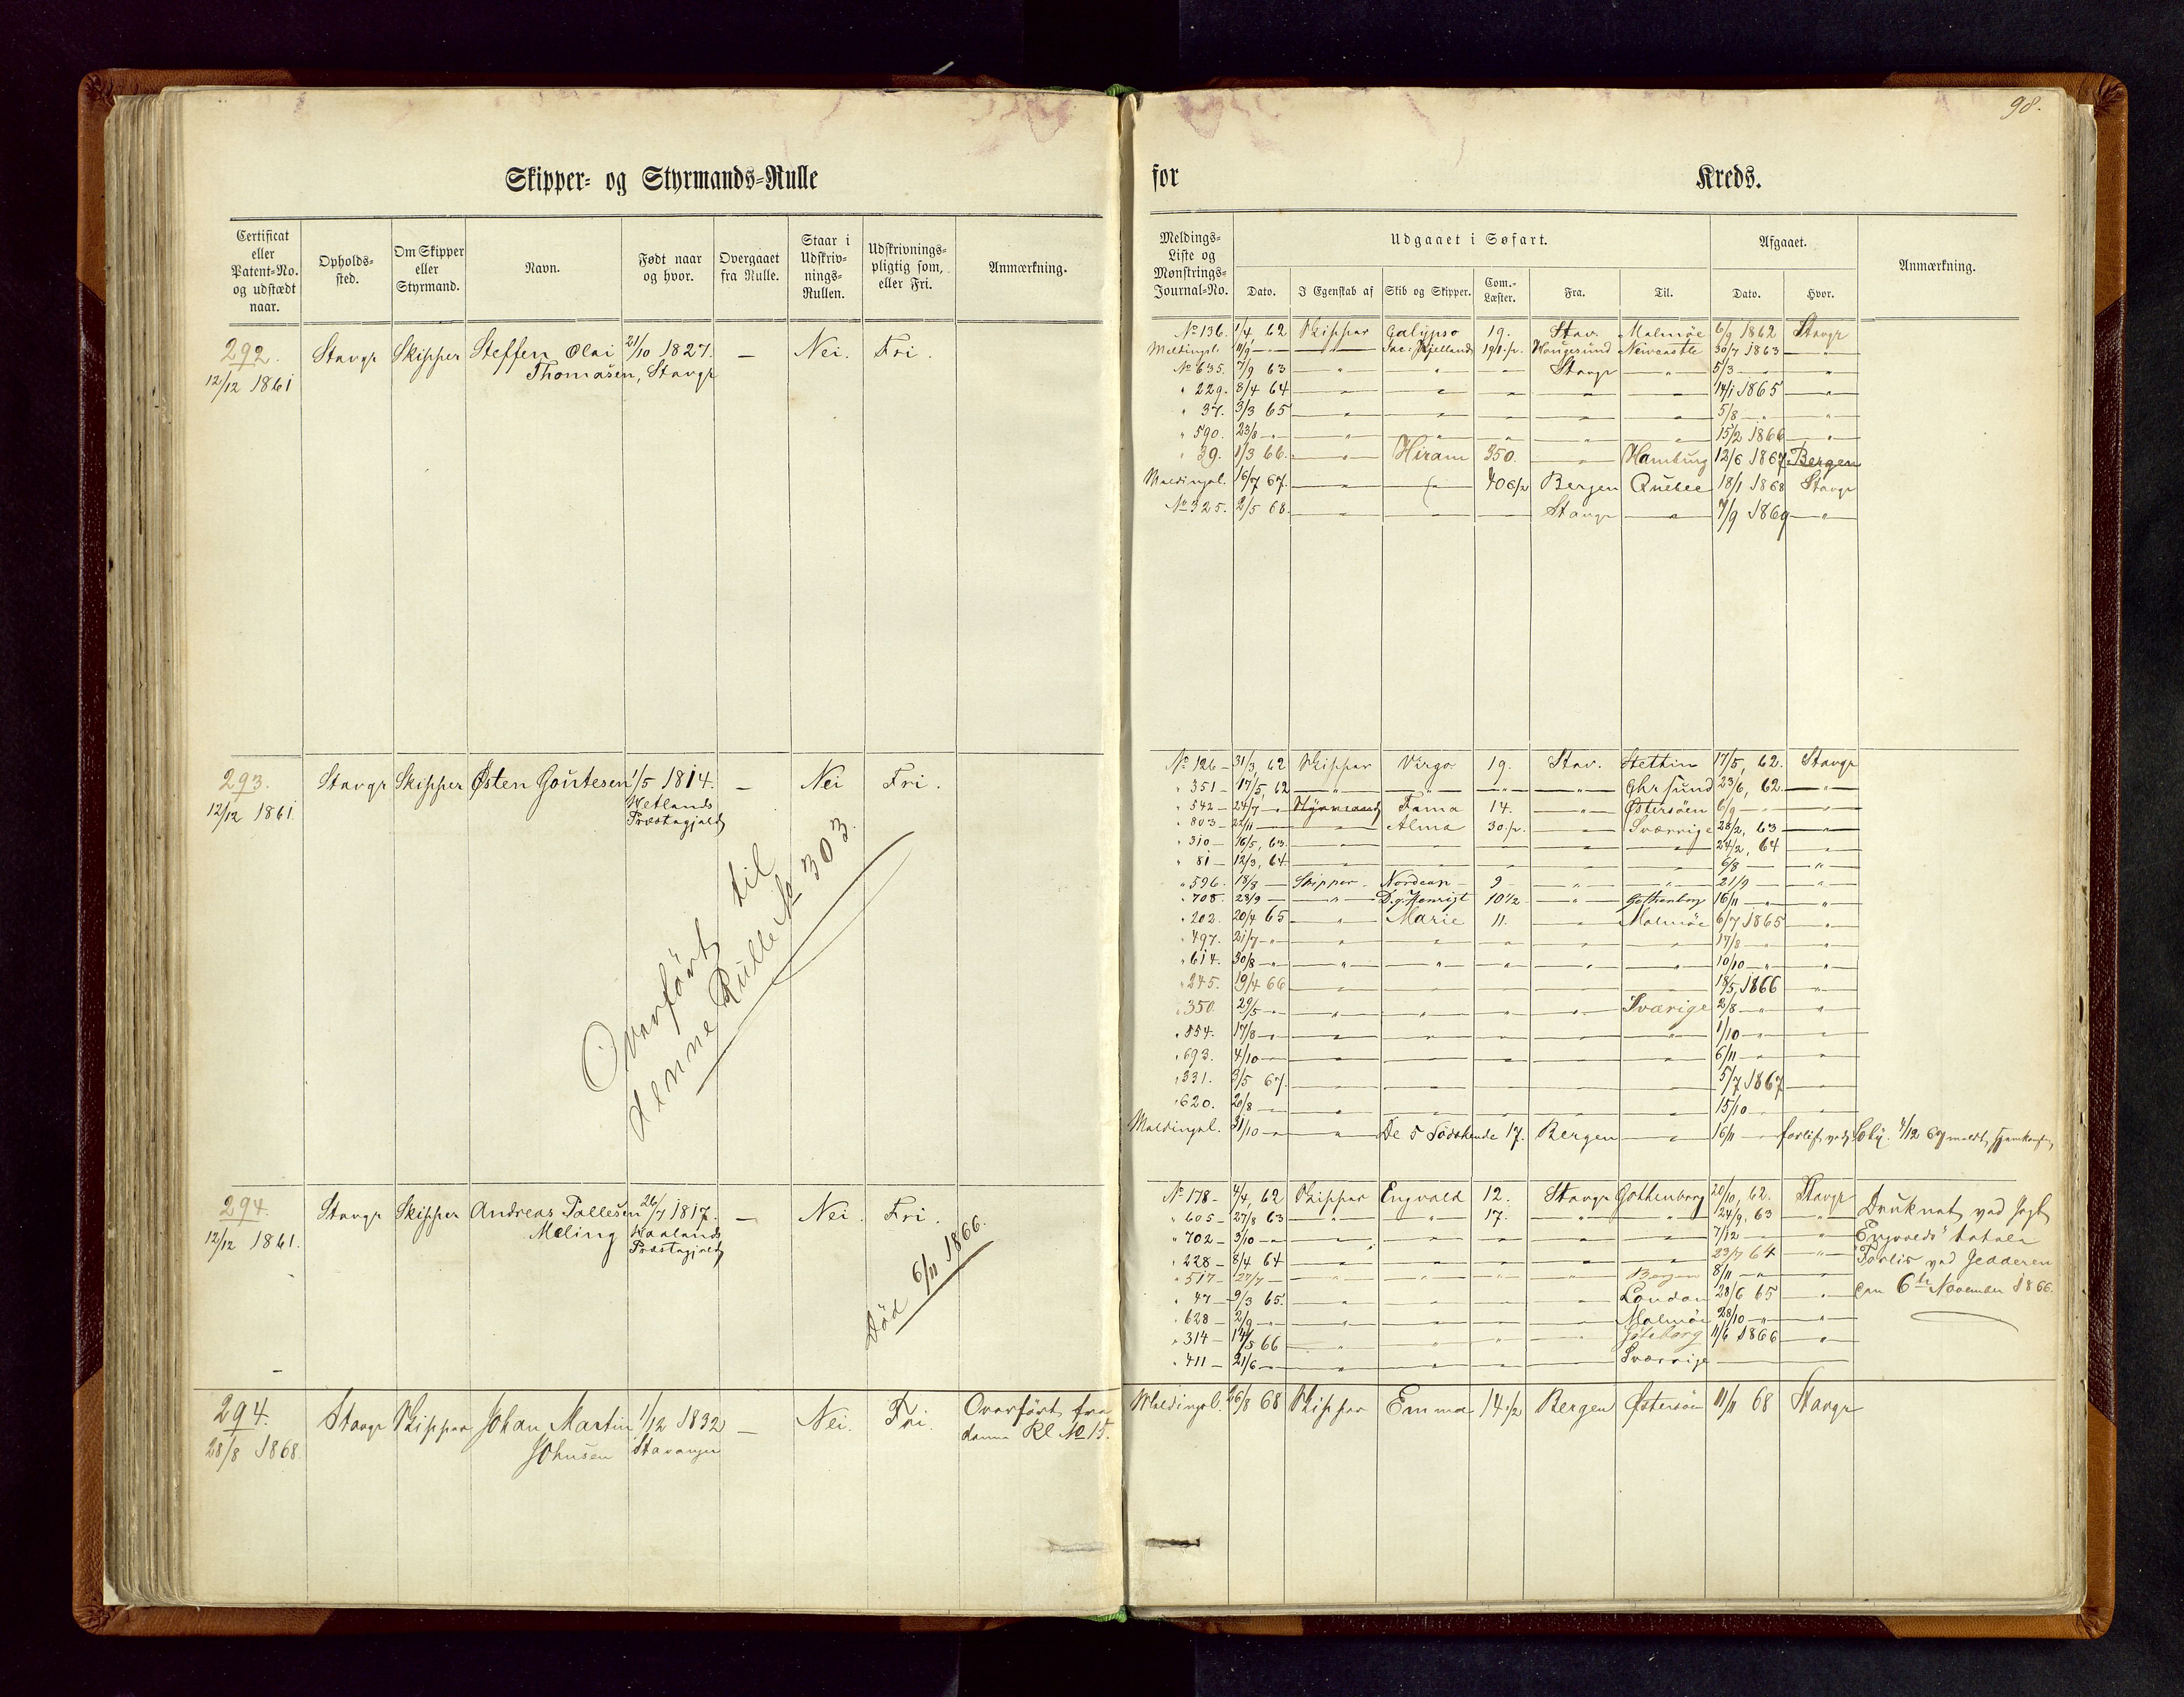 98.
Skipper- og Styrmands-Rulle for Kreds.
Certificat eller Patent-No. og udstædt naar. Opholds-sted. Om Skipper eller Styrmand. Navn. Født naar og hvor. Overgaaet fra Rulle. Staar i Udskriv-nings-Rullen. Udskrivnings-pligtig som, eller Fri. Anmærkning.
Meldings-Liste og Mønstrings-Journal-No. Udgaaet i Søfart. Afgaaet. Anmærkning.
Dato. I Egenskab af Skib og Skipper. Com.-Læster. Fra. Til. Dato. Hvor.
292. Stavgr Skipper Steffen Olai 21/10 1827. — Nei. Fri.
12/12 1861 Thomasen, Stavgr
No 136. 1/4, 62 Skipper Galÿpso 19. Stav. Malmöe 6/9 1862 Stavgr
Meldingsl. 11/9 — " — " Jac: Kjelland 19 1/2. Haugesund Newcastle 30/7 1863 — " —
No 635. 7/9 63 — " — " — Stavgr — " — 5/3 — " — "
" 229. 8/4 64 — " — " — " — " — 14/1 1865 — " —
" 37. 3/3 65 — " — " — " — " — 5/8 — " — "
" 590. 23/8 — " — " — " — " — " — 15/2 1866 "
" 39. 1/3 66. — " — Hiram 350. — " — Hamburg 12/6 1867 Bergen
Meldingsl. 16/7 67. — " — " — 406/2 Bergen Quebec 18/1 1868 Stavgr
No 325. 2/5 68. — " — " — Stavgr — " — 7/9 1869 — " —
293. Stavgr Skipper Østen Goutesen 1/5 1814. — Nei Fri.
12/12 1861. Hetlands
Præstegjeld
Overført til
denne Rulle No 303.
No 126 — 31/3, 62 Skipper Virgo 19. Stav. Stettin 17/5, 62. Stavgr
" 351 — 17/5, 62 — " — " — " — Ghrsund 23/6, 62. — " —
" 542 — 24/7 — " Styrmand Fama 14. — " — Østersöen 6/9 — " — "
" 803 — 22/11 — " — Alma 30 1/2. — " — Sverrige 28/2, 63. — " —
" 310 — 16/5, 63. — " — " — " — " — 24/2, 64 — " —
" 81 — 12/3, 64 — " — " — " — " — 6/8 — " — "
" 596. 18/8 — Skipper — Nordcap — 9 — " — " — 21/9 — " — "
" 708. 28/9 — " — D. g. Henrigt 10 1/2. — " — Gothenborg 16/11 — " — "
" 202. 20/4 65 — " — Marie 11. — " — Malmöe 6/7 1865 — " —
" 497. 21/7 — " — " — " — " — " — " — 17/8 — " — "
" 614. 30/8 — " — " — " — " — " — " — 10/10 — " — "
" 245. 19/4 66 — " — " — " — " — 18/5, 1866 — " —
" 350. 29/5 — " — " — " — " — " — Sverige 2/8 — " — "
" 554. 17/8 — " — " — " — " — " — " — 1/10 — " — "
" 693. 4/10 — " — " — " — " — " — " — 6/11 — " — "
" 331. 3/5 67. — " — " — " — " — " — 5/7 1867 — " —
" 620. 20/8 — " — " — " — " — " — 15/10 — " — "
Meldingsl. 31/10 — " — " — De 5 Södskende 17. Bergen — " — 16/11 — forlist 4/12 67
294. Stavgr Skipper Andreas Pallesen 26/7 1817. — Nei. Fri.
12/12 1861. Meling Haalands
Præstegjeld
Död 6/11 1866.
No 178 — 4/4, 62 Skipper Engvald 12. Stavgr Gothenborg 20/10, 62. Stavgr Druknet ved Jagt
" 605 — 27/8 63 — " — " — 17. — " — " — 24/9, 63 — " — Engvalds totale
" 702 — 3/10 — " — " — " — " — 7/12 — " — Forlis ved Jedderen
" 228 — 8/4 64 — " — " — " — " — 23/7 64 — " — den 6te November 1866.
" 517 — 27/7 — " — " — " — " — Bergen 8/11 — " —
" 47 — 9/3 65. — " — " — " — " — London 28/6 65 — " —
" 628 — 2/9 — " — " — " — " — Malmöe 28/10 — " — "
" 314 — 14/5 66 — " — " — " — " — Göteborg 11/6 1866 — " —
" 411 — 21/6 — " — " — " — " — Sverrige
294. Stavgr Skipper Johan Martin 1/12 1832 — Nei. Fri. Overført fra
28/8 1868. Johnsen Stavanger denne Rl No 15.
Meldingsl. 26/8 68 Skipper Emma 14 1/2 Bergen Østersöen 11/11 68 Stavgr